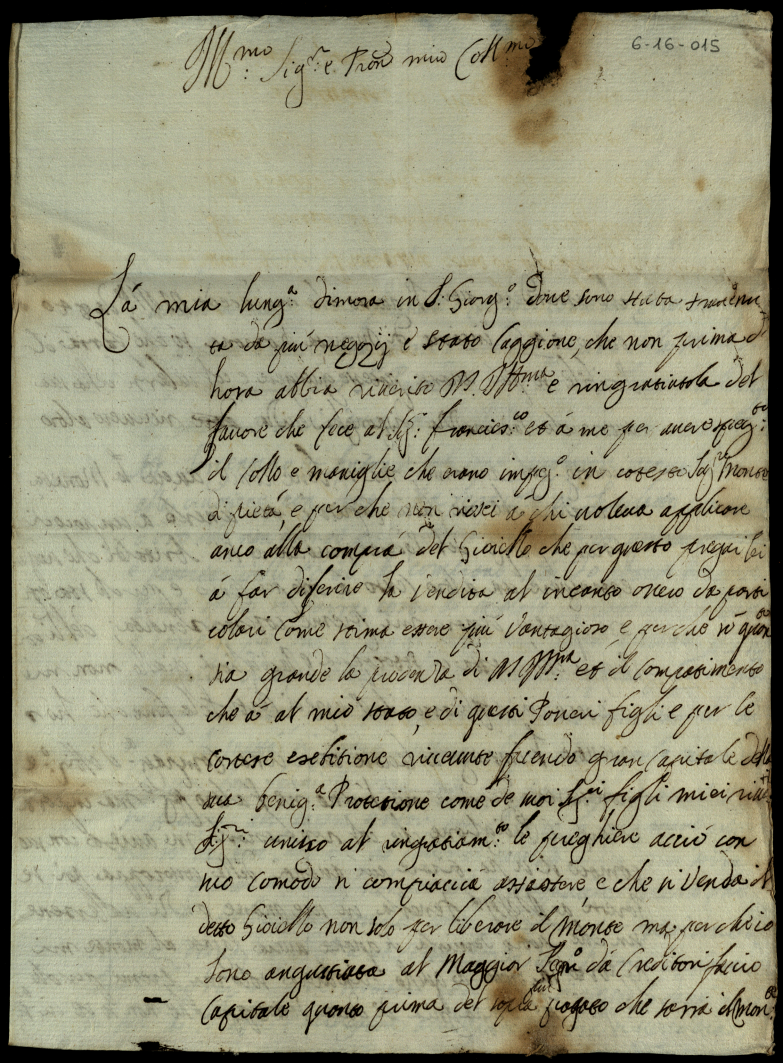 6-16-015
Ill.mo Sig.r e Pron mio Coll.mo
La mia lung.a dimora in S. Giorg.o doue sono stata trattenu
ta da più negozij è stato caggione, che non prima d
hora abbia riuerito V.S. Ill.ma e ringratiatola del
fauore che fece al Sig.r Francies.co et à me per auere
il Collo e maniglie che erano impeg.o in cotesto Monte
di pietà, e perche non riuci à chi uoleua applicare
anco alla comprà del Gioiello che per questo pregai lei
à far diferire la Vendita al incanto overo da parti
colari come stima essere più vantagioso e perche sò quan
sia grande la prudenza di V.S. Ill.ma et il compatimento
che à al mio stato, e di questi Poueri figli e per le
cortese esebitione riceuute facendo gran capitale della
sua benig.a Protetione come de suoi Sig.ri figli miei riue
Sig.ri unisco al ringratiam.to le preghiere acciò con
suo comodo si compiaccià assistere e che si Venda il
detto Gioiello non solo per liberare il monte ma perche io
sono angustiata al Maggior Segno dà Creditori faccio
Capitale quanto prima del sopra più pagato che sarrà il mon.te